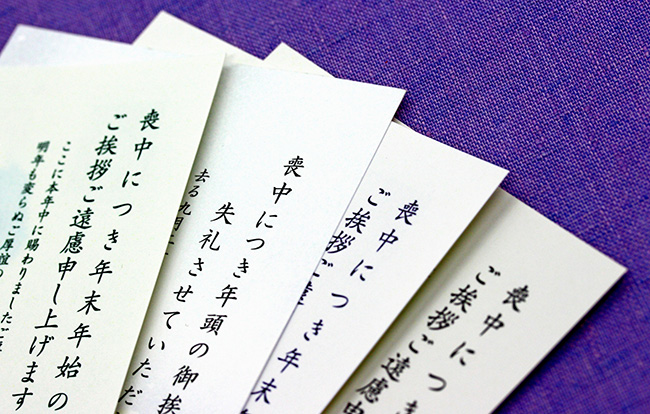 喪中につき年末年始の
ご挨拶ご遠慮申し上げます
ここに本年中に賜わりましたご
明年も変らぬご厚誼の
喪中につき年頭の御挨
失礼させていただ
去る九月
喪中につき年末
ご挨拶ご遠
喪中に
ご挨拶ご遠慮申